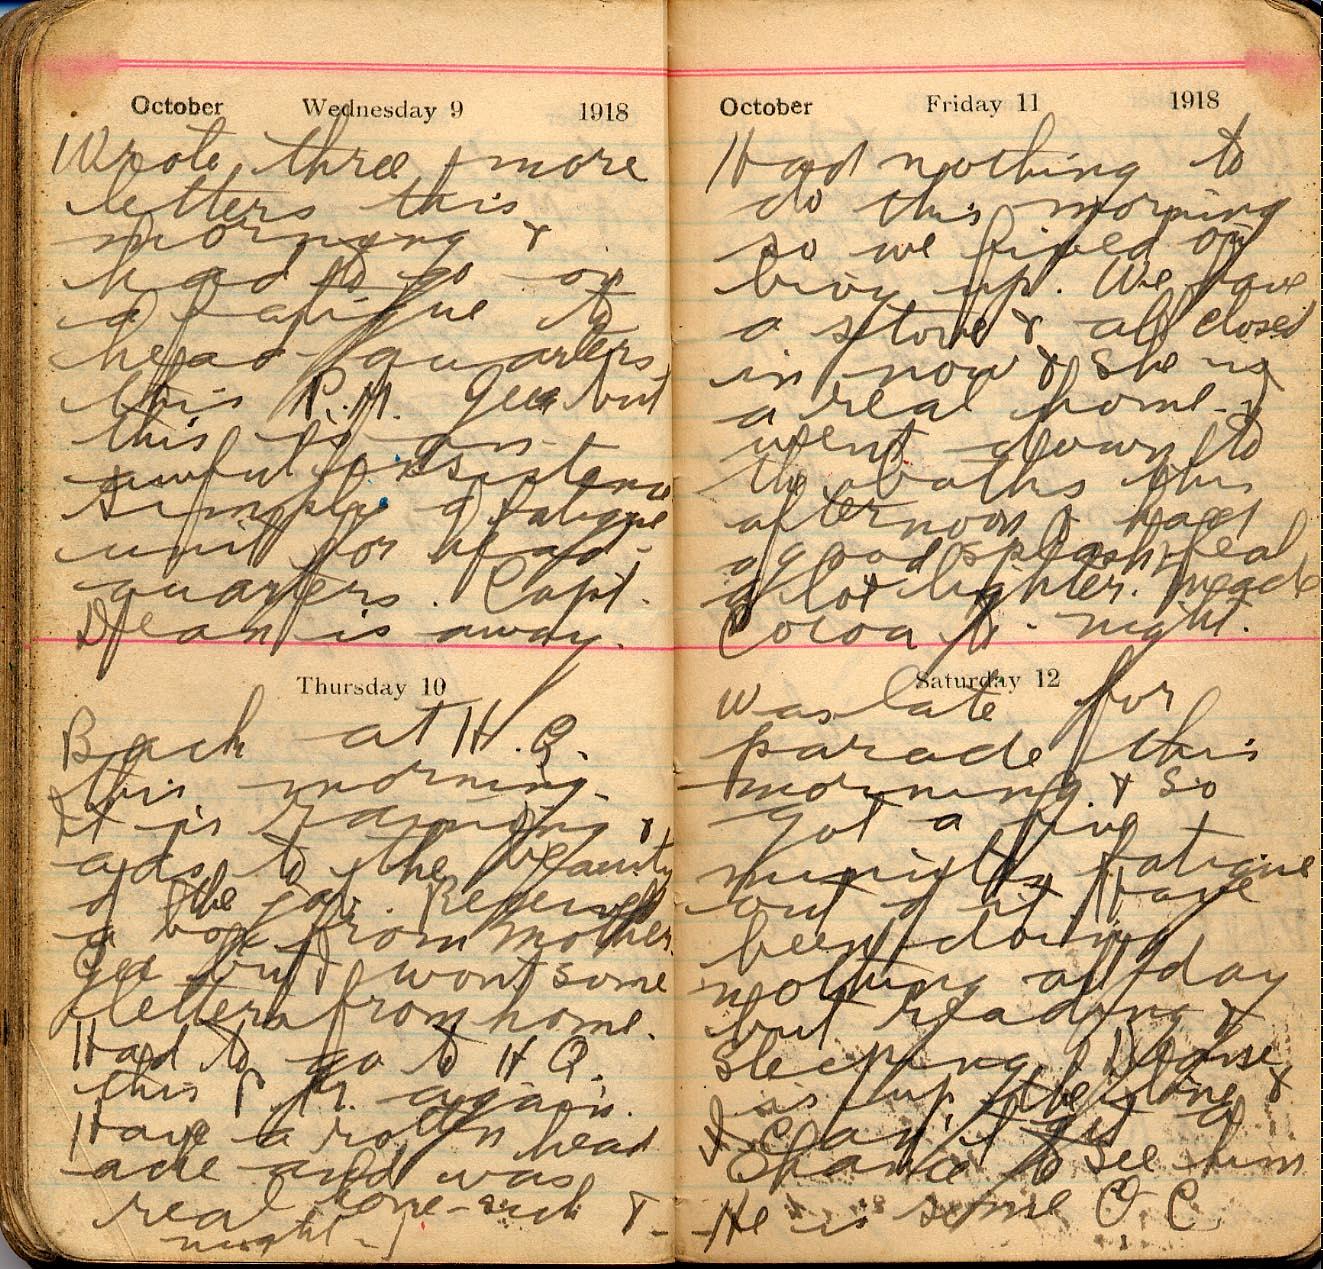 October Wednesday 9 1918
Wrote three more
letters this
morning &
had to go on
a fatigue to
head quarters
this P.M. Gee but
this is an
awful existence
simply a fatigue
unit for head-
quarters. Capt.
Dean is away.
Thursday 10
Back at H.Q.
this morning.
It is raining &
ads to the beauty
of the job. Received
a box from Mother.
Gee but I want some
letters from home.
Had to go to H Q.
this P.M. again.
Have a rotten head
ache and was
real sick T-
night-
October Friday 11 1918
Had nothing to
do this morning
so we fixed our
bivy up. We have
a stove & all closed
in now & she is
a real home.
went down to
the baths this
afternoon & had
a good splash. feal
a lot lighter. made
Cocoa to-night.
Saturday 12
was late for
parade this
morning & so
got a five
minute fatigue
out of it. Have
been doing
nothing all day
but reading &
sleeping.
is up the line &
I can't get a
chance to see him
He is some O.C.